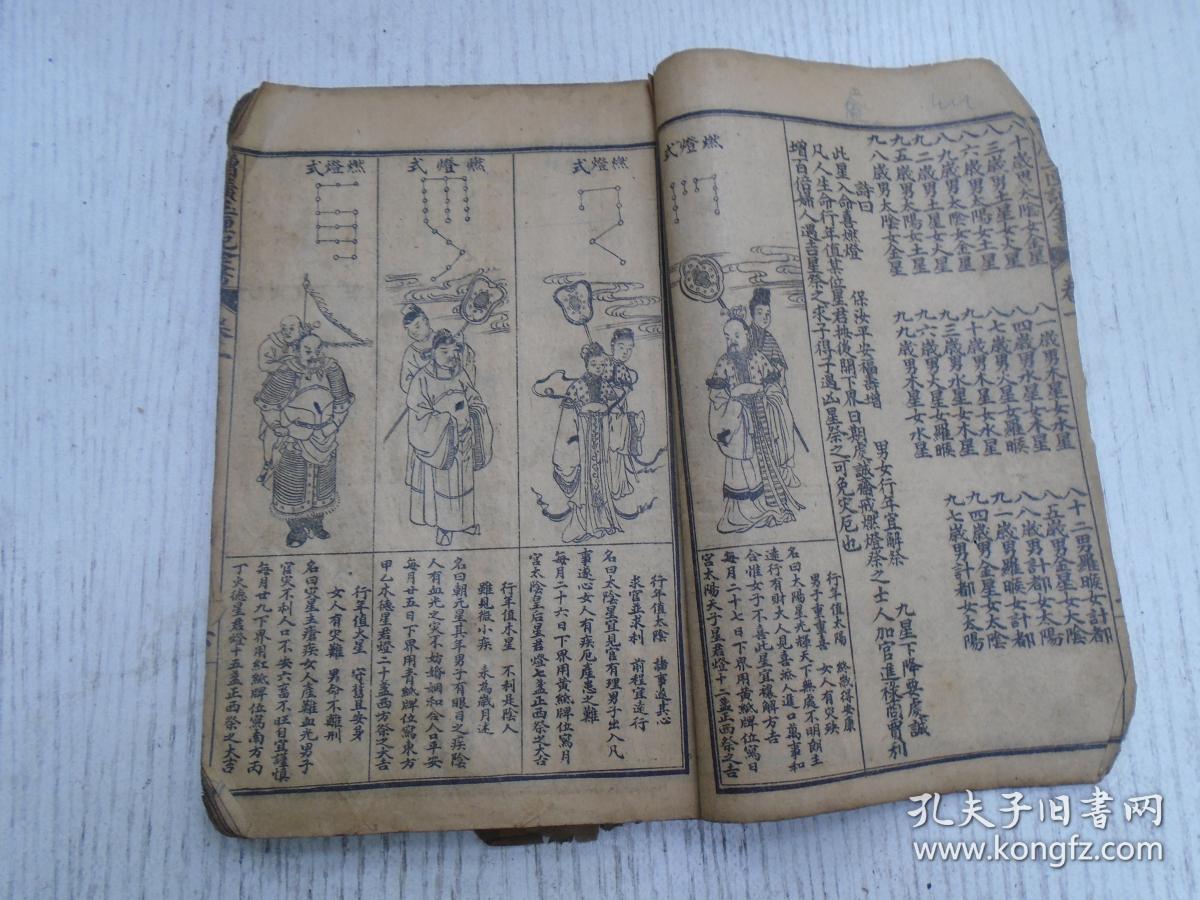 八十歲男太陰女金星
八一歲男木星女水星
八十二男羅睺女計都
八三歲男土星女火星
八四歲男水星女木星
八五歲男金星女太陰
八六歲男太陽女土星
八七歲男火星女羅睺
八八歲男計都女太陽
八九歲男太陰女金星
九十歲男木星女水星
九一歲男羅睺女計都
九二歲男土星女火星
九三歲男水星女木星
九四歲男金星女太陰
九五歲男太陽女土星
九六歲男火星女羅睺
九七歲男計都女太陽
九八歲男太陰女金星
九九歲男木星女水星
詩曰
男女行年宜解祭
九星下降要虔誠
此星入命喜燃燈
保汝平安福壽增
凡人生命行年值其位星君按後開下界日期虔誠齋戒燃燈祭之士人加官進祿商賈利
增百倍婦人遇吉星祭之求子得子遇凶星祭之可免灾厄也
燃燈式
行年值太陽 終歲得安康
男子重重喜 女人有灾殃
名曰太陽星光輝天下無處不明朗主
遠行有財大人見喜添人進口萬事和
合惟女子不喜此星宜禳解方吉
每月二十七日下界用黃紙牌位寫日
宮太陽天子星君燈十二盞正西祭之大吉
燃燈式
行年值太陰 諸事遂其心
求官並求利 前程宜遠行
名曰太陰星宜見官有理男子出入凡
事遂心女人有疾厄產患之難
每月二十六日下界用黃紙牌位寫月
宮太陰皇后星君燈七盞正西祭之大吉
燃燈式
行年值木星 不利是陰人
雖見微小疾 永為歲月迷
名曰朝元星其年男子有眼目之疾陰
人有血光之灾不妨婚姻和合人口平安
每月廿五日下界用青紙牌位寫東方
甲乙木德星君燈二十盞西方祭之大吉
燃燈式
行年值火星 守舊且安身
女人有灾難 男命不離刑
名曰灾星主瘡疾女人產難血光男子
官灾不利人口不安六畜不旺日宜謹慎
每月廿九下界用紅紙牌位寫南方丙
丁火德星君燈十五盞正西祭之大吉
孔夫子旧书网
www.kongfz.com